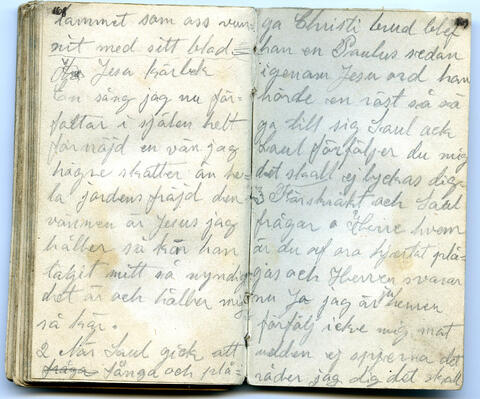 lammet som oss vun-
nit med sitt blod
Jesu kärlek
En sång jag nu för-
fattar i själen helt
förnöjd en vän jag
högre skatter än he-
la jordens fröjd den
vännen är Jesus jag
håller så kär han
taget mitt så
det är och håller mig
så kär.
2 När Saul gick att
fråga fånga och plå-
ga Christi brud blef
han en Paulus sedan
igenom Jesu ord han
hörde en röst så sä
ga till sig Saul ack
Saul förföljer du mig
det skall ej lyckas dig
3 Förskräckt och Saul
frågar o Herre hvem
är du
gas och Herren svarar
nu Jo jag är
förfölj icke mig mot
udden ej spjerna det
råder jag dig det skall